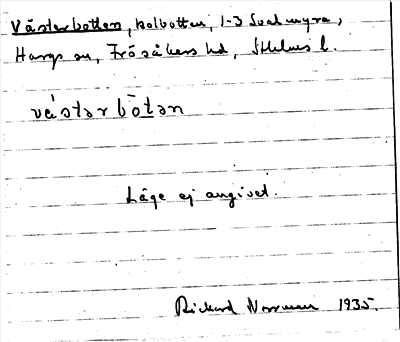 Västerbotten, kolbotten, 1-3 Svalmyra,
Hargs sn, Frösåkers hd, Sthlms l.
västərbòtən
Läge ej angivet.
Rickard Norrman 1935.